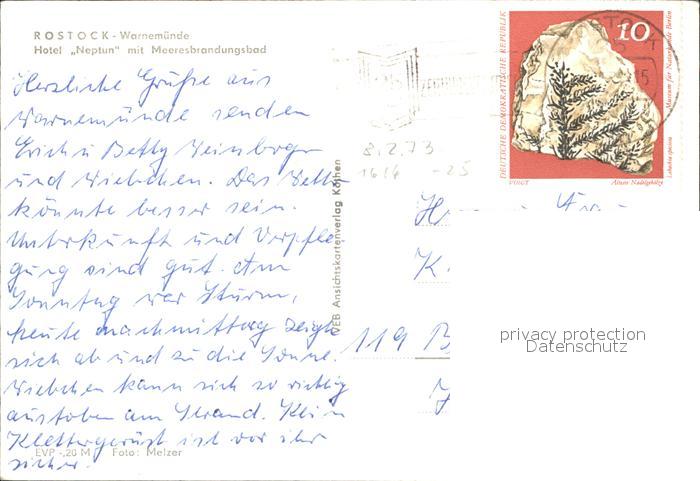 ROSTOCK - Warnemünde
Hotel „Neptun" mit Meeresbrandungsbad
Herzliche Grüße aus
Warnemünde senden
Erich u Betty Weinberger
und Wiebchen. Das Wetter
könnte besser sein.
Unterkunft und Verpfle
gung sind gut. Am
Sonntag war Sturm,
heute nachmittag zeigte
sich ab und zu die Sonne.
Wiebchen kann sich so richtig
austoben am Strand. Kein
Klettergerüst ist vor ihr
sicher.
EVP -,20 M Foto: Melzer
VEB Ansichtskartenverlag Köthen
8.2.73
1616 -25
DEUTSCHE DEMOKRATISCHE REPUBLIK
10
Museum für Naturkunde Berlin
Lebachia speciosa
VOIGT
Ältere Nadelgehölze
H
K.
119 B
privacy protection
Datenschutz